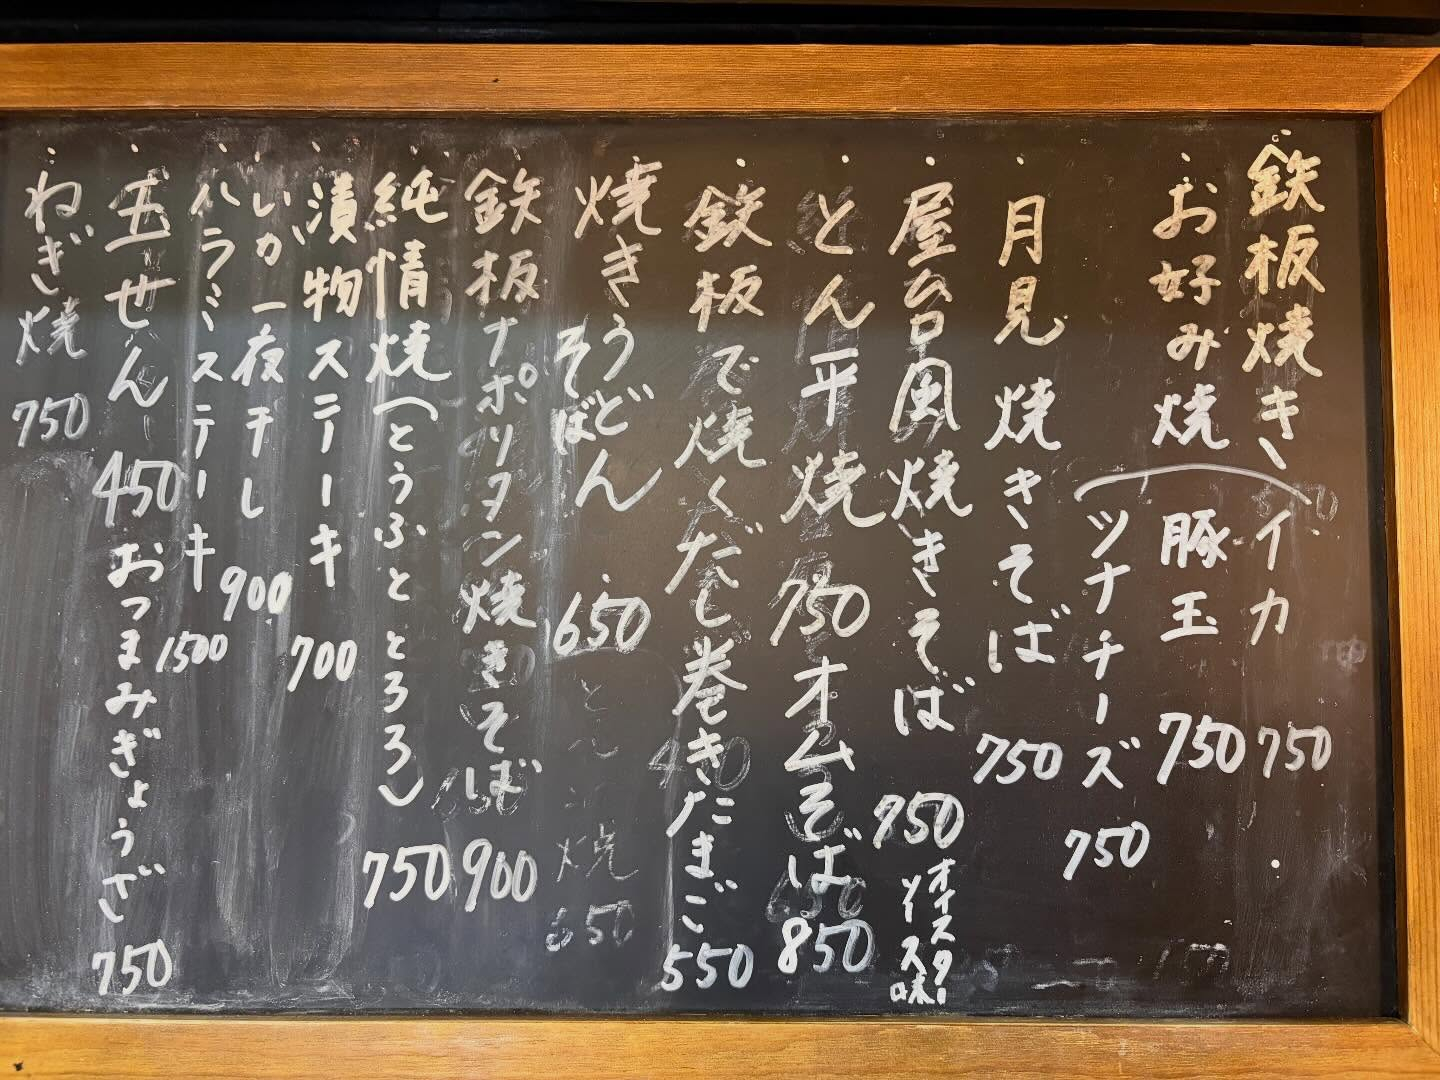 鉄板焼き
お好み焼
イカ 750
豚玉 750
ツナチーズ 750
月見焼きそば 750
屋台風焼きそば 750
オイスター
ソース味
とん平焼 750
オムそば 850
鉄板で焼くだし巻きたまご 550
焼きうどん
そば
650
鉄板ナポリタン焼きそば 900
純情焼(とうふととろろ) 750
漬物ステーキ 700
いか一夜干し 900
ハラミステーキ 1500
玉せん 450
おつまみぎょうざ 750
ねぎ焼 750